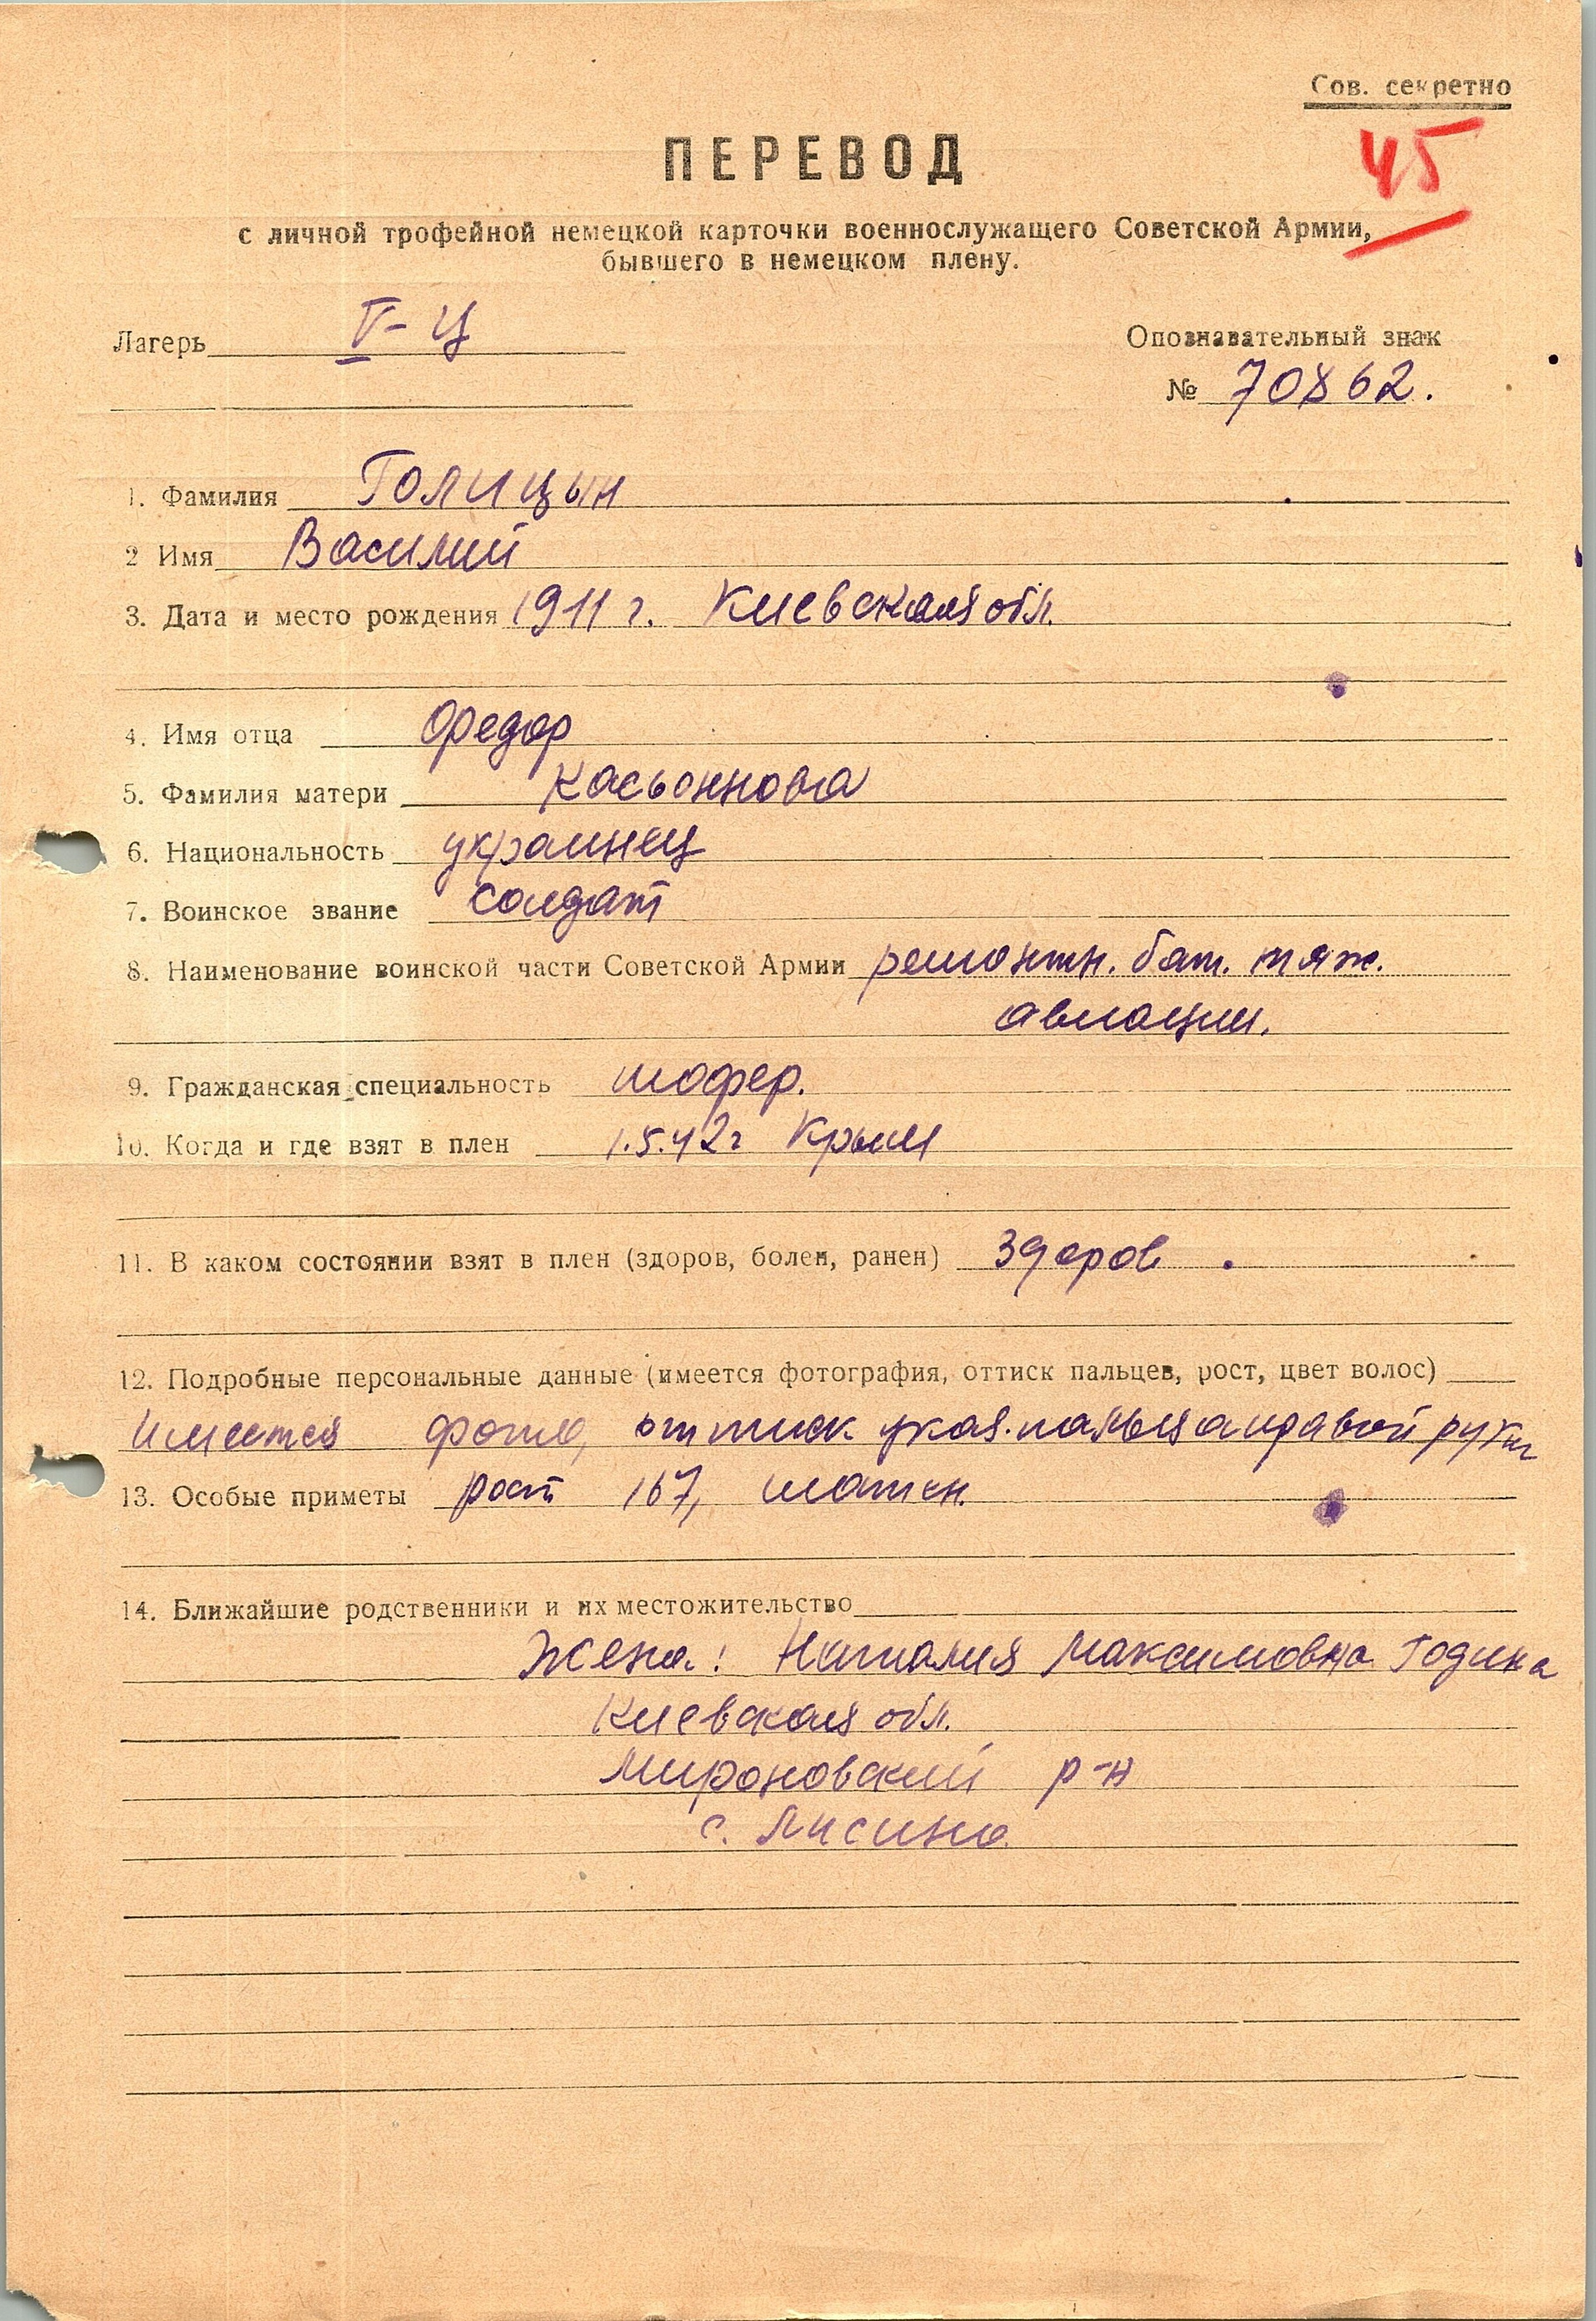 Сов. секретно
45
ПЕРЕВОД
с личной трофейной немецкой карточки военнослужащего Советской Армии,
бывшего в немецком плену.
Лагерь V-Ц
Опознавательный знак
№ 70862.
1. Фамилия Голицын
2 Имя Василий
3. Дата и место рождения 1911 г. Киевская обл.
4. Имя отца Федор
5. Фамилия матери Касьоннова
6. Национальность украинец
7. Воинское звание солдат
8. Наименование воинской части Советской Армии ремонтн. бат. тяж.
авиации.
9. Гражданская специальность шофер.
10. Когда и где взят в плен 1.5.42г Крым
11. В каком состоянии взят в плен (здоров, болен, ранен) здоров.
12. Подробные персональные данные (имеется фотография, оттиск пальцев, рост, цвет волос)
Имеется фото, оттиск указ. пальца правой руки
13. Особые приметы рост 167, шатен.
14. Ближайшие родственники и их местожительство
Жена: Наталия Максимовна Година
Киевская обл.
Мироновский р-н
с. Лисина